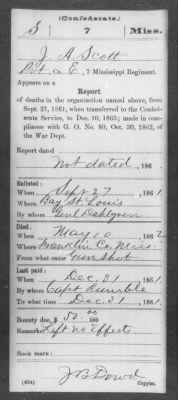 (Confederate.)
S 7 Miss.
J. A. Scott
Pvt, Co. E, 7 Mississippi Regiment.
Appears on a
Report
of deaths in the organization named above, from
Sept. 27, 1861, when transferred to the Confed-
erate Service, to Dec. 10, 1863; made in com-
pliance with G. O. No. 80, Oct. 30, 1862, of
the War Dept.
Report dated
Not dated, 186 .
Enlisted:
When Sept 27, 1861.
Where Bay St. Louis
By whom Genl Dahlgren
Died:
When May 10, 1862
Where Franklin Co. Miss.
From what cause Gunshot
Last paid:
When Dec. 31, 1861.
By whom Capt Rumble
To what time Dec. 31, 1861.
Bounty due, $50.00/100
Remarks: Left no Effects
Book mark:
J B Dowd
Copyist.